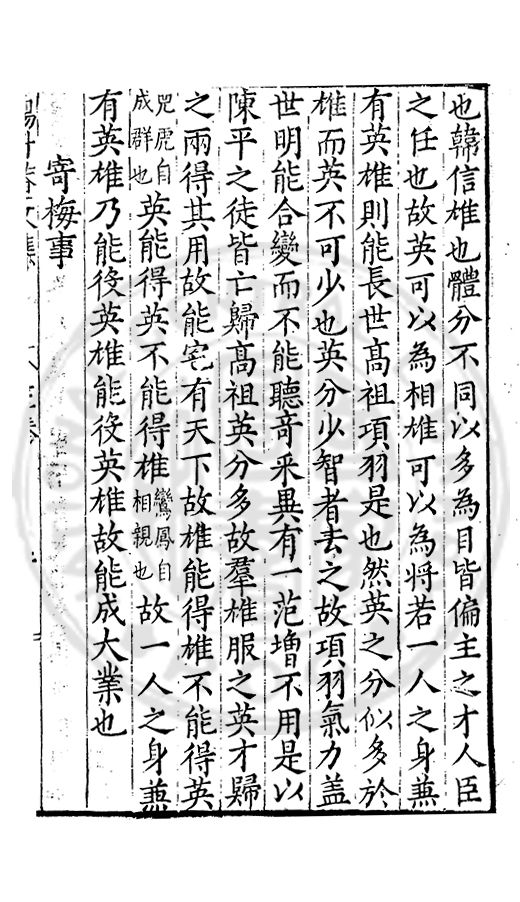 也韓信雄也體分不同以多為目皆偏主之才人臣
之任也故英可以為相雄可以為將若一人之身兼
有英雄則能長世高祖項羽是也然英之分似多於
雄而英不可少也英分少智者去之故項羽氣力盖
世明能合變而不能聽竒采異有一范增不用是以
陳平之徒皆亡歸高祖英分多故羣雄服之英才歸
之兩得其用故能宅有天下故雄能得雄不能得英
兕虎自
成群也
英能得英不能得雄
鸞鳳自
相親也
故一人之身兼
有英雄乃能役英雄能役英雄故能成大業也
寄梅事